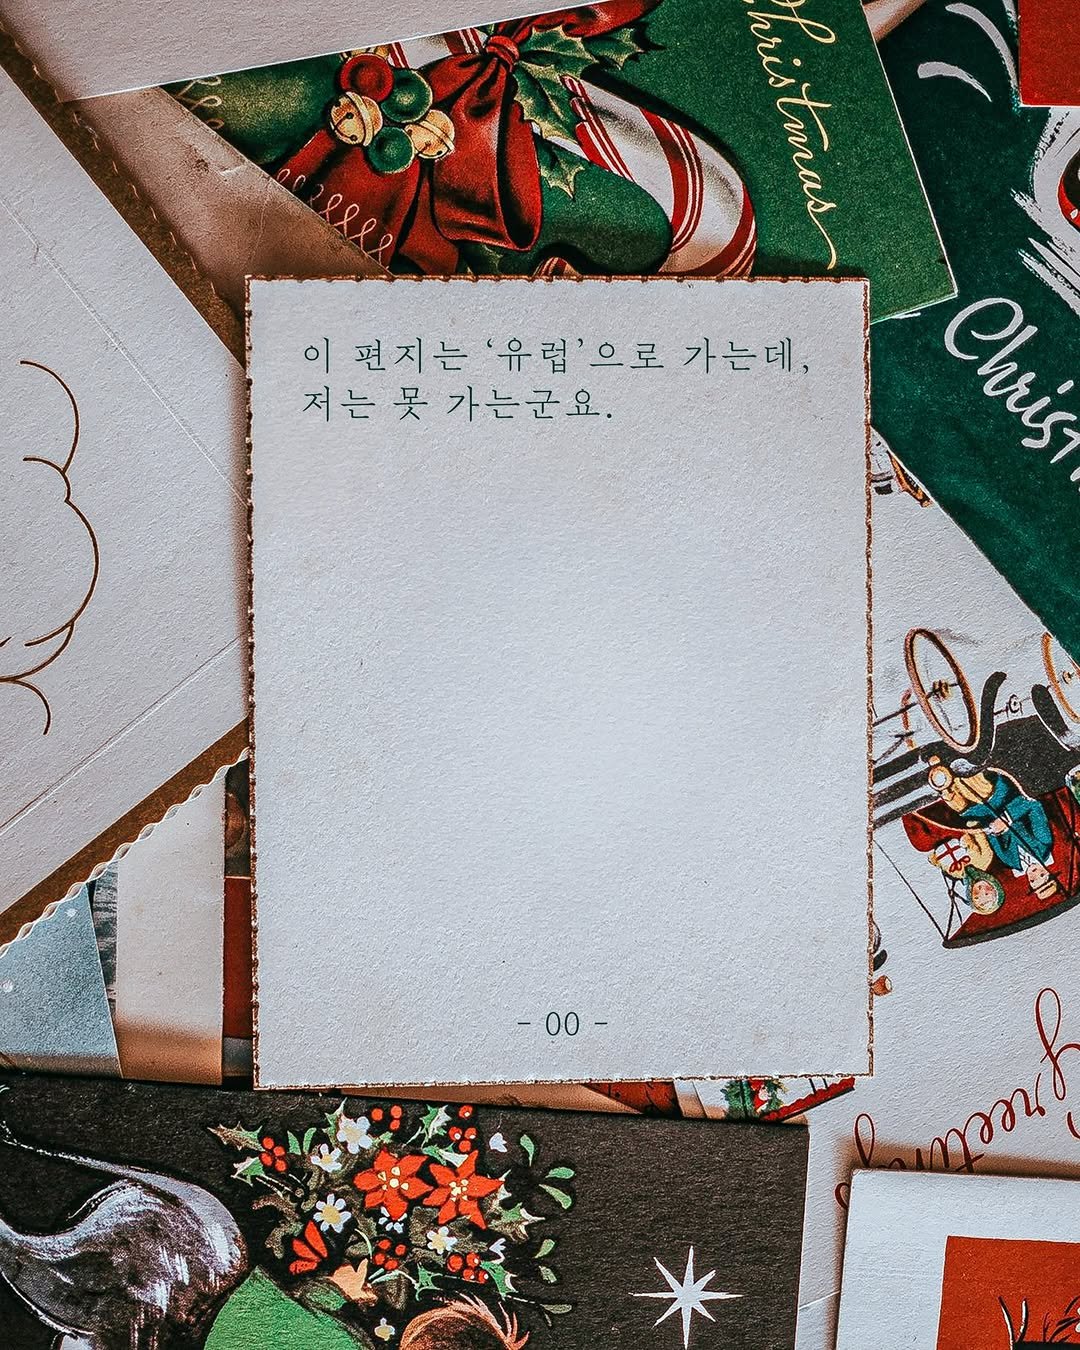 Christmas
이 편지는 ‘유럽’으로 가는데,
저는 못 가는군요.
Christ
- 00 -
Greeting